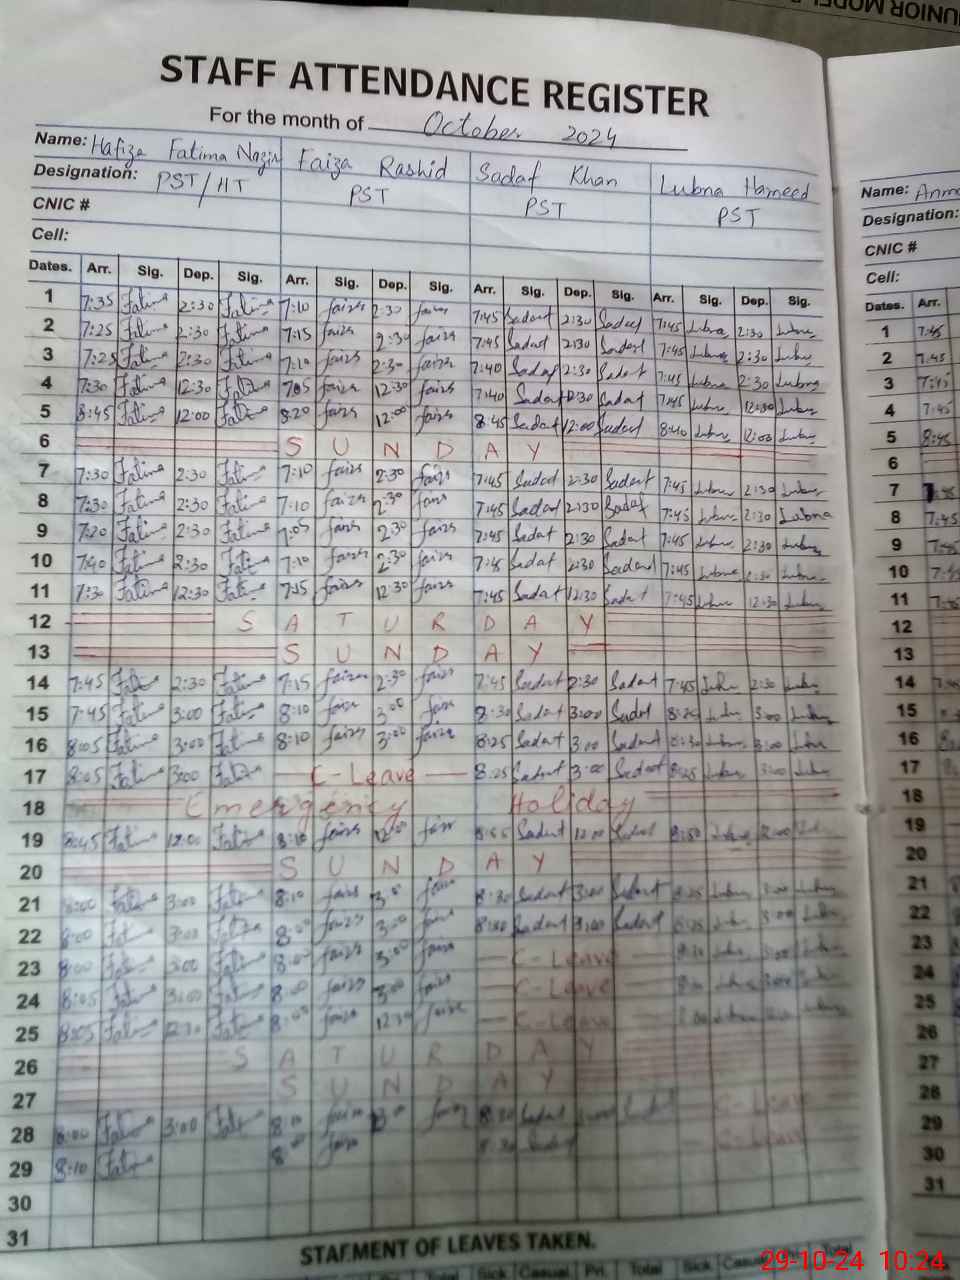 UNIOR MODEL
STAFF ATTENDANCE REGISTER
For the month of October 2024
Name: Hafiza Fatima Nazir Faiza Rashid Sadaf Khan Lubna Hameed Name:
Designation: PST/HT PST PST PST Designation:
CNIC # CNIC #
Cell: Cell:
Dates. Arr. Sig. Dep. Sig. Arr. Sig. Dep. Sig. Arr. Sig. Dep. Sig. Arr. Sig. Dep. Sig. Dates. Arr.
1 7:35 Fatima 2:30 Fatima 7:10 faiza 2:30 faiza 7:45 Sadaf 2:30 Sadaf 7:45 Lubna 2:30 Lubna 1 7:45
2 7:25 Fatima 2:30 Fatima 7:15 faiza 2:30 faiza 7:45 Sadaf 2:30 Sadaf 7:45 Lubna 2:30 Lubna 2 7:45
3 7:25 Fatima 2:30 Fatima 7:10 faiza 2:30 faiza 7:40 Sadaf 2:30 Sadaf 7:45 Lubna 2:30 Lubna 3 7:45
4 7:30 Fatima 12:30 Fatima 7:05 faiza 12:30 faiza 7:40 Sadaf 12:30 Sadaf 7:45 Lubna 12:30 Lubna 4 7:45
5 8:45 Fatima 12:00 Fatima 8:20 faiza 12:00 faiza 8:45 Sadaf 12:00 Sadaf 8:40 Lubna 12:00 Lubna 5 8:45
6 SUNDAY 6
7 7:30 Fatima 2:30 Fatima 7:10 faiza 2:30 faiza 7:45 Sadaf 2:30 Sadaf 7:45 Lubna 2:30 Lubna 7
8 7:30 Fatima 2:30 Fatima 7:10 faiza 2:30 faiza 7:45 Sadaf 2:30 Sadaf 7:45 Lubna 2:30 Lubna 8 7:45
9 7:20 Fatima 2:30 Fatima 7:05 faiza 2:30 faiza 7:45 Sadaf 2:30 Sadaf 7:45 Lubna 2:30 Lubna 9
10 7:40 Fatima 2:30 Fatima 7:10 faiza 2:30 faiza 7:45 Sadaf 2:30 Sadaf 7:45 Lubna 2:30 Lubna 10
11 7:30 Fatima 12:30 Fatima 7:15 faiza 12:30 faiza 7:45 Sadaf 12:30 Sadaf 7:45 Lubna 12:30 Lubna 11
12 SATURDAY 12
13 SUNDAY 13
14 7:45 Fatima 2:30 Fatima 7:15 faiza 2:30 faiza 7:45 Sadaf 2:30 Sadaf 7:45 Lubna 2:30 Lubna 14
15 7:45 Fatima 3:00 Fatima 8:10 faiza 3:00 faiza 8:30 Sadaf 3:00 Sadaf 8:25 Lubna 3:00 Lubna 15
16 8:05 Fatima 3:00 Fatima 8:10 faiza 3:00 faiza 8:25 Sadaf 3:00 Sadaf 8:30 Lubna 3:00 Lubna 16
17 8:05 Fatima 3:00 Fatima C-Leave 8:25 Sadaf 3:00 Sadaf 8:25 Lubna 3:00 Lubna 17
18 Emergency Holiday 18
19 8:45 Fatima 12:00 Fatima 8:10 faiza 12:00 faiza Sadaf 12:00 Sadaf 8:50 Lubna 19
20 SUNDAY 20
21 8:00 Fatima 3:00 Fatima 8:10 faiza 3:00 faiza 8:30 Sadaf 3:00 Sadaf 8:25 Lubna 3:00 Lubna 21
22 8:00 Fatima 3:00 Fatima 8:00 faiza 3:00 faiza 8:30 Sadaf 3:00 Sadaf 8:25 Lubna 3:00 Lubna 22
23 8:00 Fatima 3:00 Fatima 8:00 faiza 3:00 faiza C-Leave Lubna 23
24 8:05 Fatima 3:00 Fatima 8:00 faiza 3:00 faiza C-Leave Lubna 3:00 Lubna 24
25 8:05 Fatima 12:30 Fatima 8:00 faiza 12:30 faiza C-Leave Lubna 25
26 SATURDAY 26
27 SUNDAY 27
28 8:00 Fatima 3:00 Fatima 8:10 faiza 3:00 faiza 8:30 Sadaf Sadaf C-Leave 28
29 8:10 Fatima 8:00 faiza 8:30 Sadaf C-Leave 29
30 30
31 31
STATEMENT OF LEAVES TAKEN.
Total Sick Casual Pri. Total Sick Casual Total
29-10-24 10:24